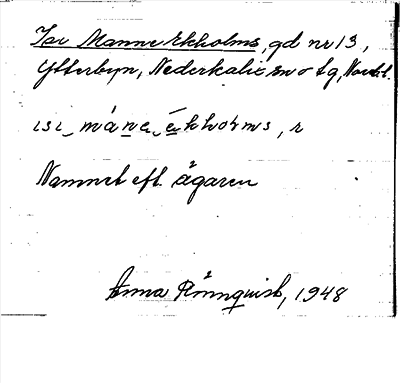 Isi Manne Ekholms, gd nr 13,
Ytterbyn, Nederkalix sn o tg, Nordb.
ısı_ mánɛ_ɛ́khɷlms, r
Namnet eft. ägaren
Anna Rönnquist, 1948